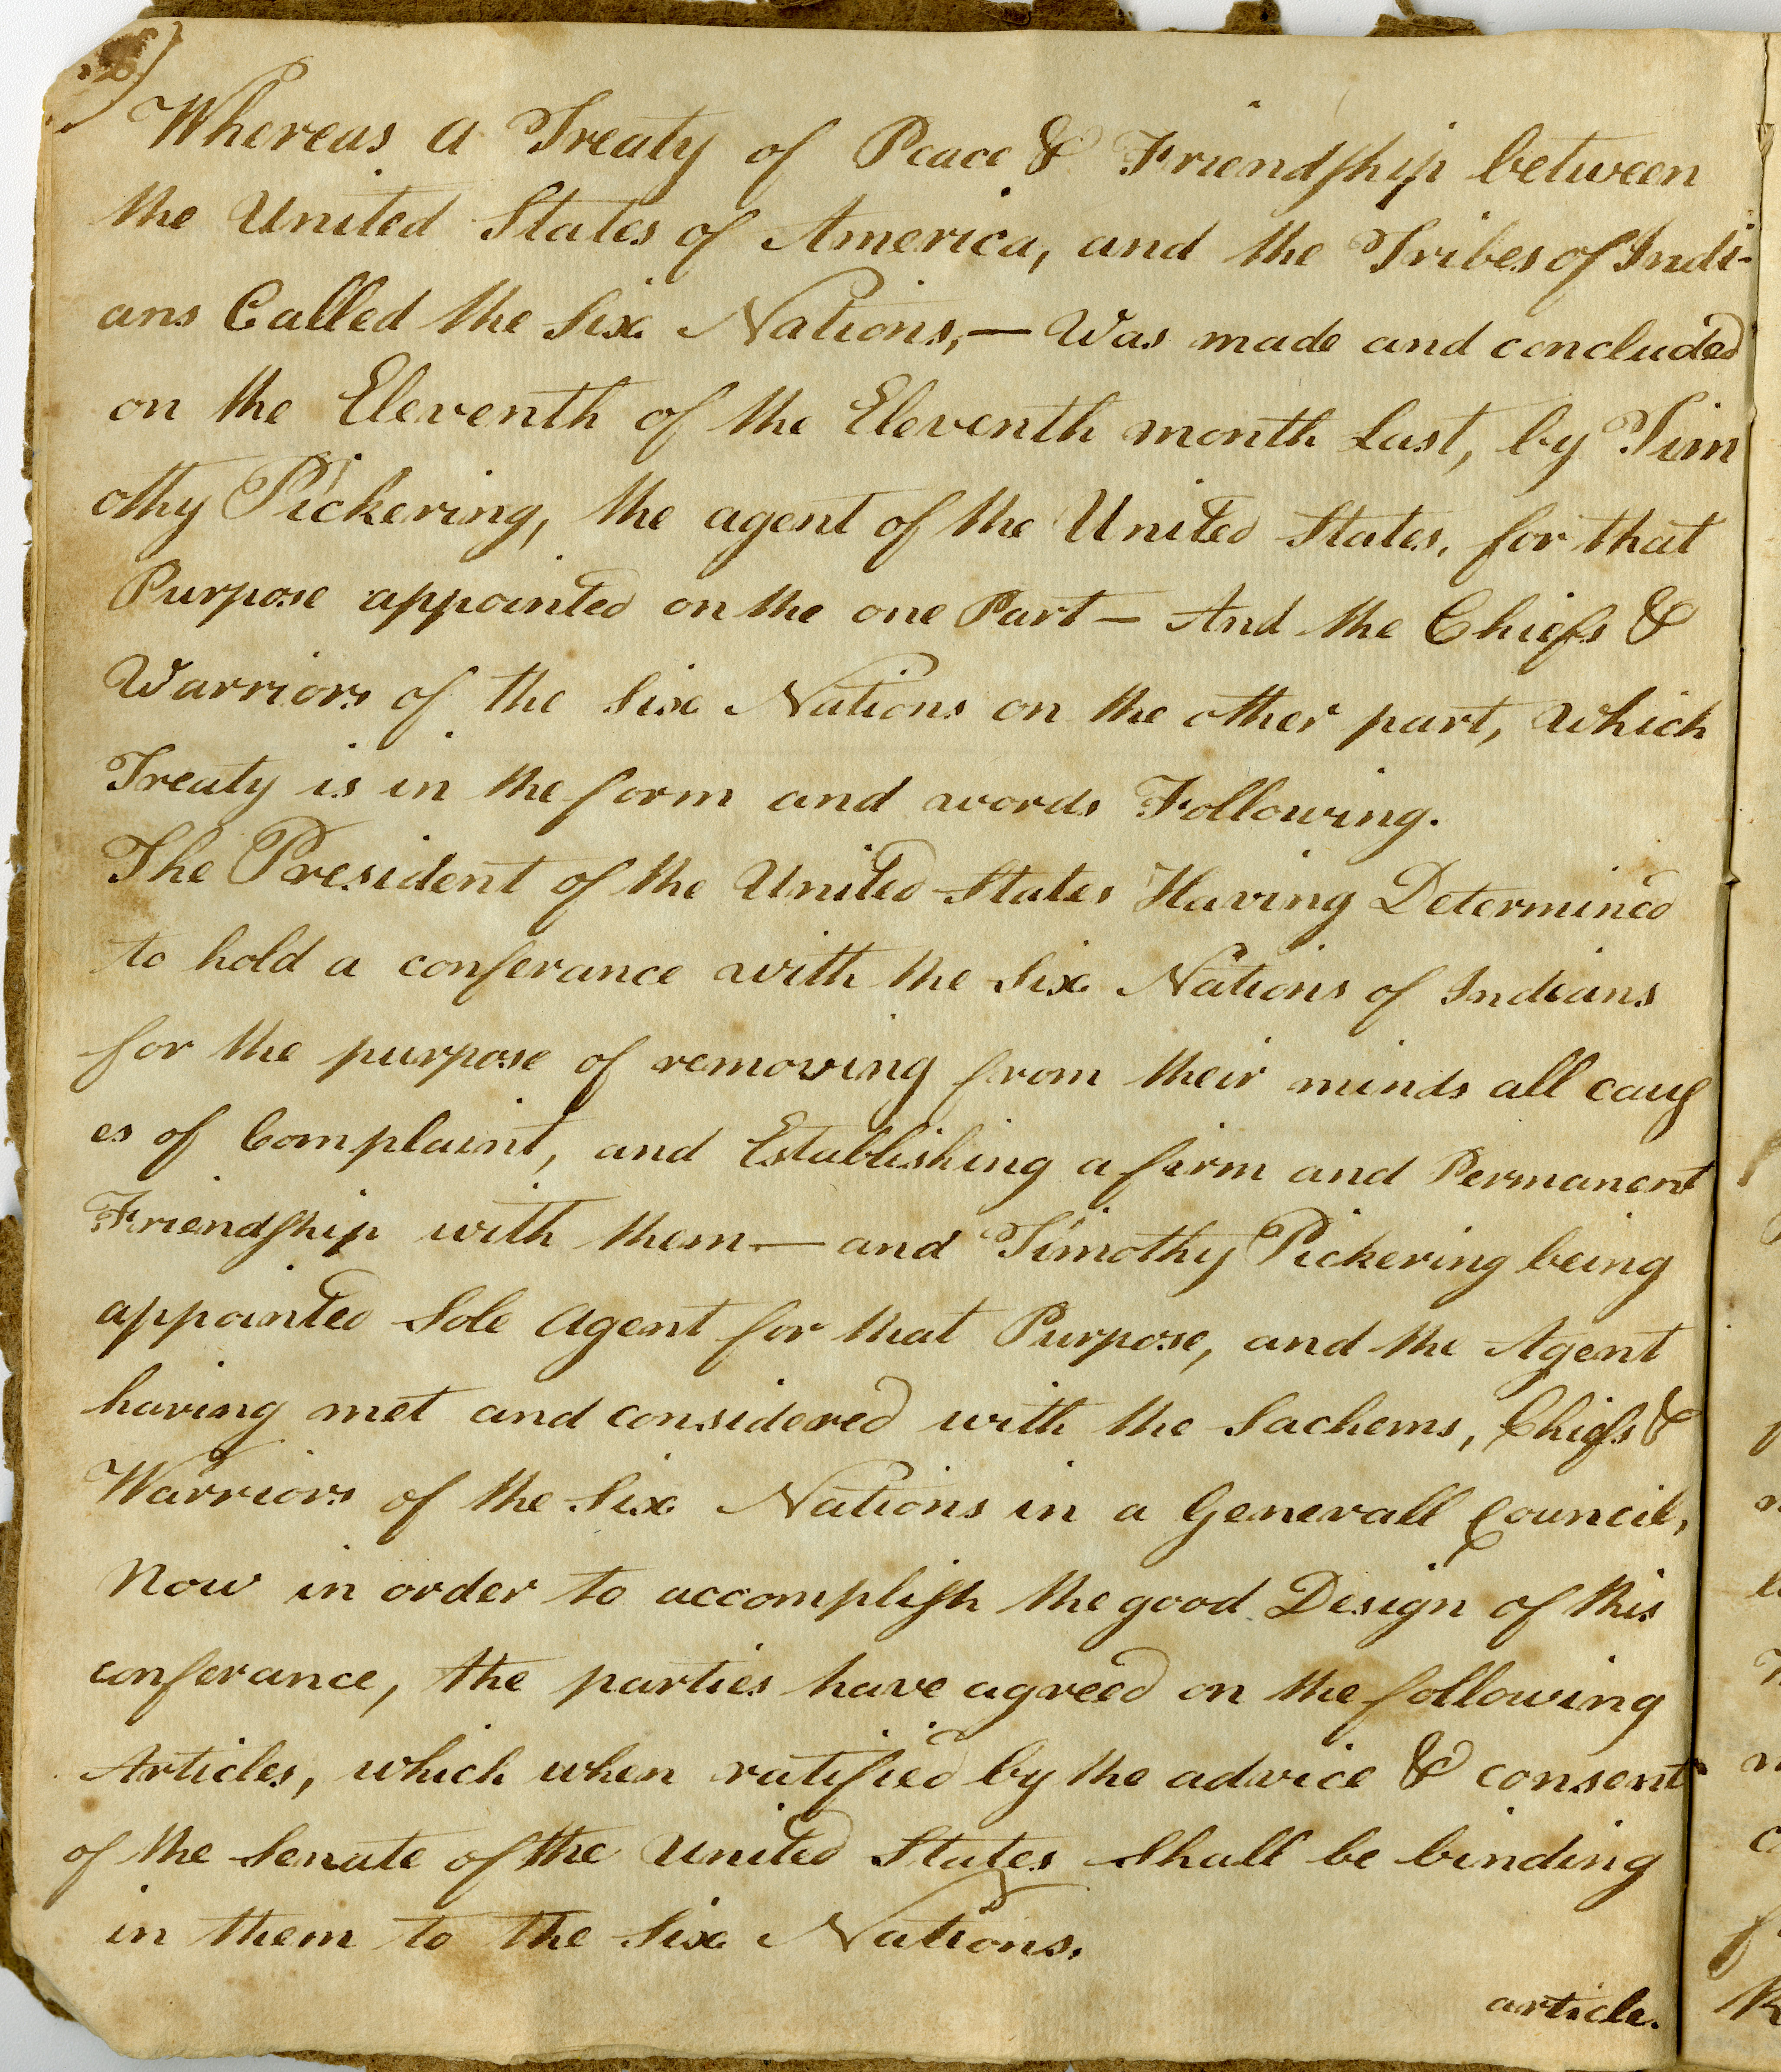 Whereas a Treaty of Peace & Friendship between
the United States of America, and the Tribes of Indi-
ans Called the Six Nations,— Was made and concluded
on the Eleventh of the Eleventh month Last, by Tim
othy Pickering, the agent of the United States, for that
Purpose appointed on the one Part — And the Chiefs &
Warriors of the Six Nations on the other part, which
Treaty is in the form and words Following.
The President of the United States Having Determined
to hold a conferance with the Six Nations of Indians
for the purpose of removing from their minds all caus
es of Complaint, and Establishing a firm and Permanent
Friendship with them — and Timothy Pickering being
appointed Sole Agent for that Purpose, and the Agent
having met and considered with the Sachems, Chiefs &
Warriors of the Six Nations in a Generall Council,
Now in order to accomplish the good Design of this
conferance, the parties have agreed on the following
Articles, which when ratified by the advice & consent
of the Senate of the United States Shall be binding
in them to the Six Nations.
article.